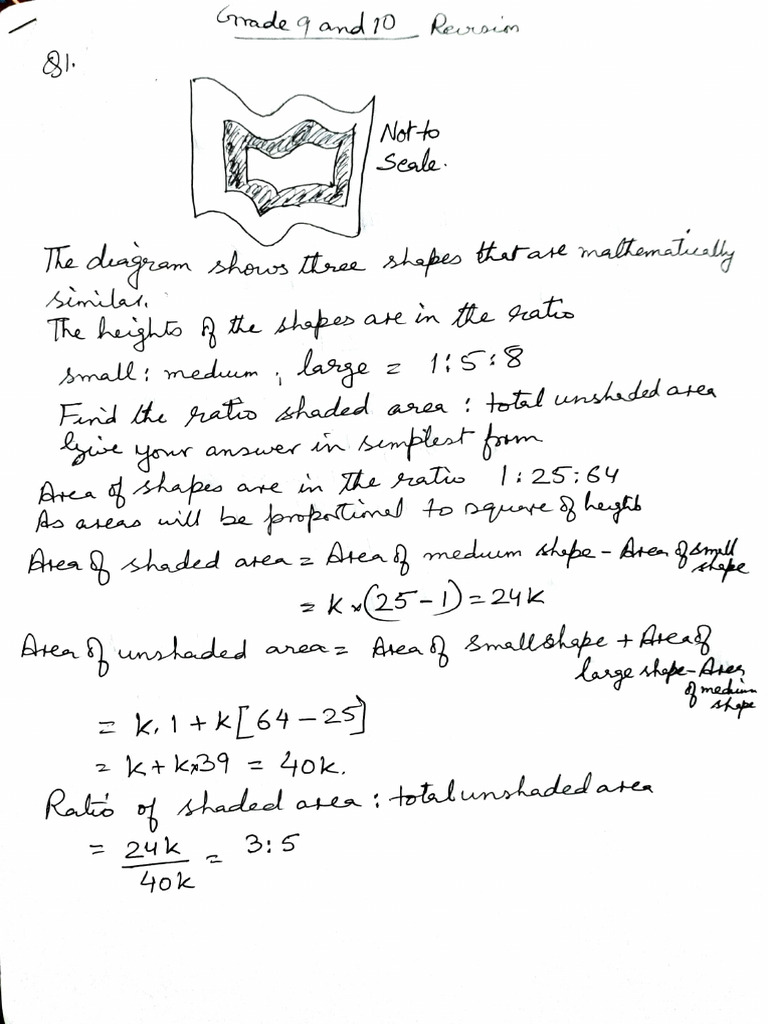 Grade 9 and 10 Revision
Q1.
Not to
Scale.
The diagram shows three shapes that are mathematically
similar.
The heights of the shapes are in the ratio
small : medium : large = 1:5:8
Find the ratio shaded area : total unshaded area
Give your answer in simplest form
Area of shapes are in the ratio 1:25:64
As areas will be proportional to square of heights
Area of shaded area = Area of medium shape - Area of small
shape
= k×(25-1) = 24k
Area of unshaded area = Area of small shape + Area of
large shape - Area
of medium
shape
= k.1 + k[64-25]
= k + k×39 = 40k.
Ratio of shaded area : total unshaded area
= 24k/40k = 3:5